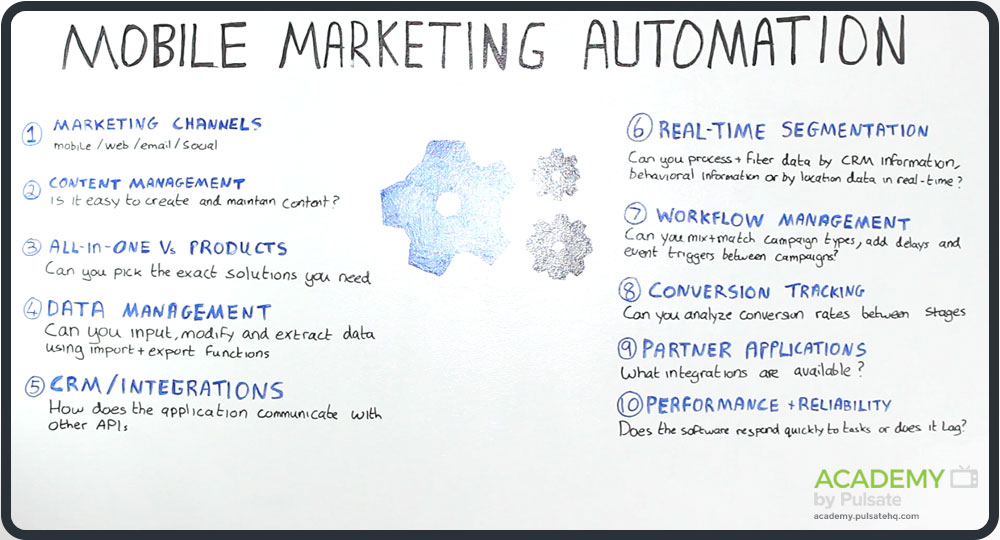 MOBILE MARKETING AUTOMATION
1 MARKETING CHANNELS
mobile / web / email / social
2 CONTENT MANAGEMENT
Is it easy to create and maintain content?
3 ALL-in-ONE Vs PRODUCTS
Can you pick the exact solutions you need
4 DATA MANAGEMENT
Can you input, modify and extract data
using import + export functions
5 CRM/INTEGRATIONS
How does the application communicate with
other APIs
6 REAL-TIME SEGMENTATION
Can you process + filter data by CRM information,
behavioral information or by location data in real-time?
7 WORKFLOW MANAGEMENT
Can you mix+match campaign types, add delays and
event triggers between campaigns?
8 CONVERSION TRACKING
Can you analyze conversion rates between stages
9 PARTNER APPLICATIONS
What integrations are available?
10 PERFORMANCE + RELIABILITY
Does the software respond quickly to tasks or does it lag?
ACADEMY
by Pulsate
academy.pulsatehq.com